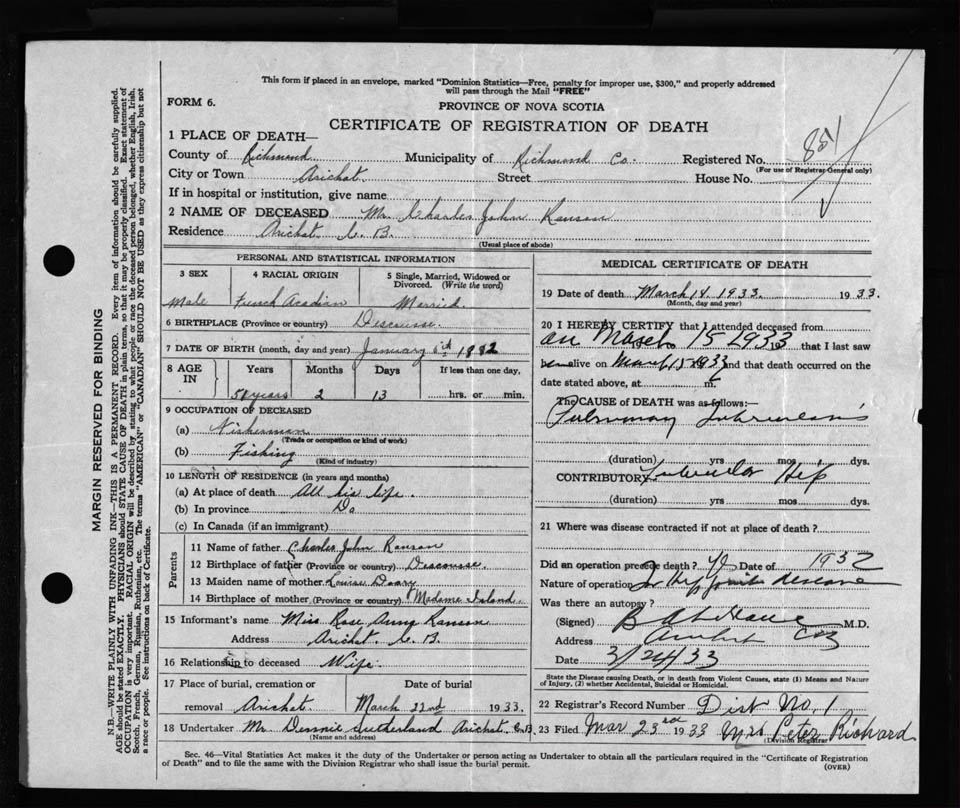 This form if placed in an envelope, marked "Dominion Statistics—Free, penalty for improper use, $300," and properly addressed
will pass through the Mail "FREE"
FORM 6.
PROVINCE OF NOVA SCOTIA
CERTIFICATE OF REGISTRATION OF DEATH
1 PLACE OF DEATH—
County of Richmond Municipality of Richmond Co. Registered No. 851
(For use of Registrar General only)
City or Town Arichat Street House No.
If in hospital or institution, give name
2 NAME OF DECEASED Mr Charles John Ranson
Residence Arichat C. B.
(Usual place of abode)
PERSONAL AND STATISTICAL INFORMATION
3 SEX 4 RACIAL ORIGIN 5 Single, Married, Widowed or Divorced. (Write the word)
Male French Acadian Married
6 BIRTHPLACE (Province or country) Descousse
7 DATE OF BIRTH (month, day and year) January 1882
8 AGE IN Years Months Days If less than one day,
years 2 13 hrs. or min.
9 OCCUPATION OF DECEASED
(a) Fisherman
(Trade or occupation or kind of work)
(b) Fishing
(Kind of industry)
10 LENGTH OF RESIDENCE (in years and months)
(a) At place of death All his life.
(b) In province Do
(c) In Canada (if an immigrant)
Parents
11 Name of father Charles John Ranson
12 Birthplace of father (Province or country) Descousse
13 Maiden name of mother Louise
14 Birthplace of mother (Province or country) Madame Island
15 Informant's name Miss Rose Anny Ranson
Address Arichat C. B.
16 Relationship to deceased Wife.
17 Place of burial, cremation or removal Arichat. Date of burial March 22nd 1933.
18 Undertaker Mr Dennie Sutherland Arichat C.B.
(Name and address)
MEDICAL CERTIFICATE OF DEATH
19 Date of death March 14. 1933. 1933.
(Month, day and year)
20 I HEREBY CERTIFY that I attended deceased from
on March 15 1933 that I last saw
h alive on March 15 1933 and that death occurred on the
date stated above, at m.
The CAUSE of DEATH was as follows:
Pulmonary Tuberculosis
(duration) yrs mos dys.
CONTRIBUTORY Tubercular Hip
(duration) yrs. mos. dys.
21 Where was disease contracted if not at place of death?
Did an operation precede death? Date of 1932
Nature of operation for Hip joint disease
Was there an autopsy?
(Signed) M.D.
Address Arichat CB
Date 3/24/33
State the Disease causing Death, or in death from Violent Causes, state (1) Means and Nature
of Injury, (2) whether Accidental, Suicidal or Homicidal.
22 Registrar's Record Number Dist No. 1
23 Filed Mar 23rd 1933 Mrs Peter Richard
Division Registrar
Sec. 46—Vital Statistics Act makes it the duty of the Undertaker or Person acting as Undertaker to obtain all the particulars required in the "Certificate of Registration
of Death" and to file the same with the Division Registrar who shall issue the burial permit.
(OVER)
MARGIN RESERVED FOR BINDING
N.B.—WRITE PLAINLY WITH UNFADING INK—THIS IS A PERMANENT RECORD. Every item of information should be carefully supplied.
AGE should be stated EXACTLY. PHYSICIANS should STATE CAUSE OF DEATH in plain terms, so that it may be properly classified. Exact statement of
OCCUPATION is very important. RACIAL ORIGIN will be described by stating to what people or race the deceased person belonged, whether English, Irish,
Scotch, French, German, Russian, Ruthenian, etc. The terms "AMERICAN" or "CANADIAN" SHOULD NOT BE USED as they express citizenship but not
a race or people. See instructions on back of Certificate.